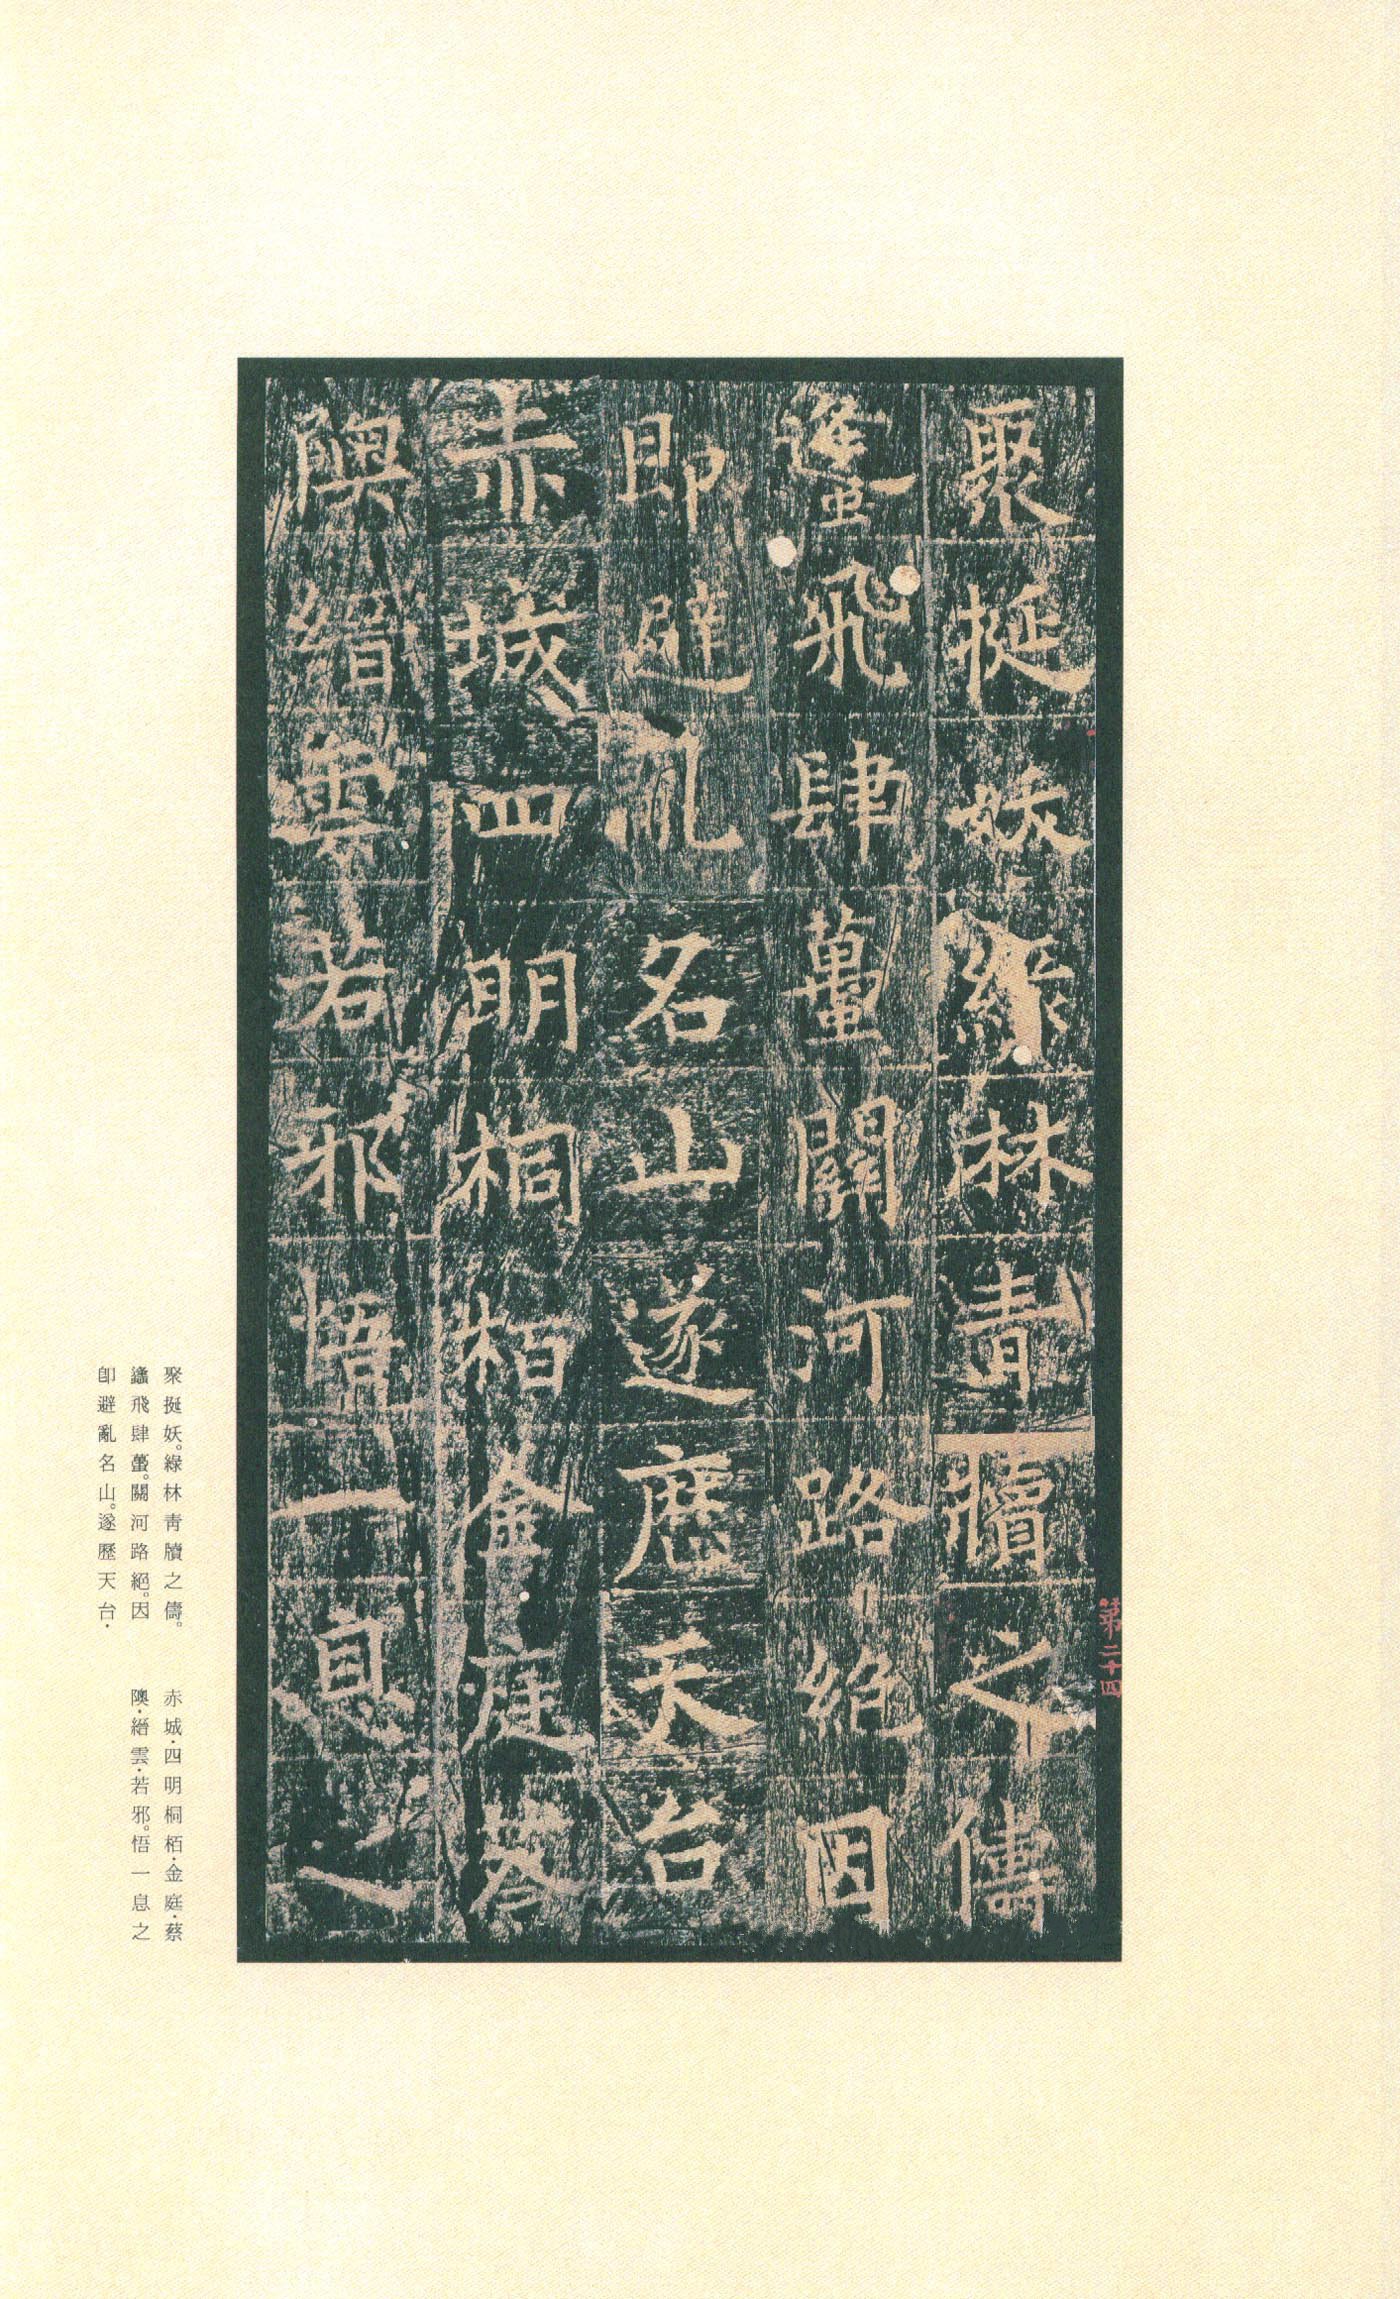 第二十四
聚挺妖綠林青牘之儔
蠭飛肆蠆關河路絕因
即避亂名山遂歷天台
赤城四明桐栢金庭蔡
隩縉雲若邪悟一息之
聚挺妖。綠林青牘之儔。
蠭飛肆蠆。關河路絕。因
卽避亂名山。遂歷天台·
赤城·四明桐栢·金庭·蔡
隩·縉雲·若邪。悟一息之